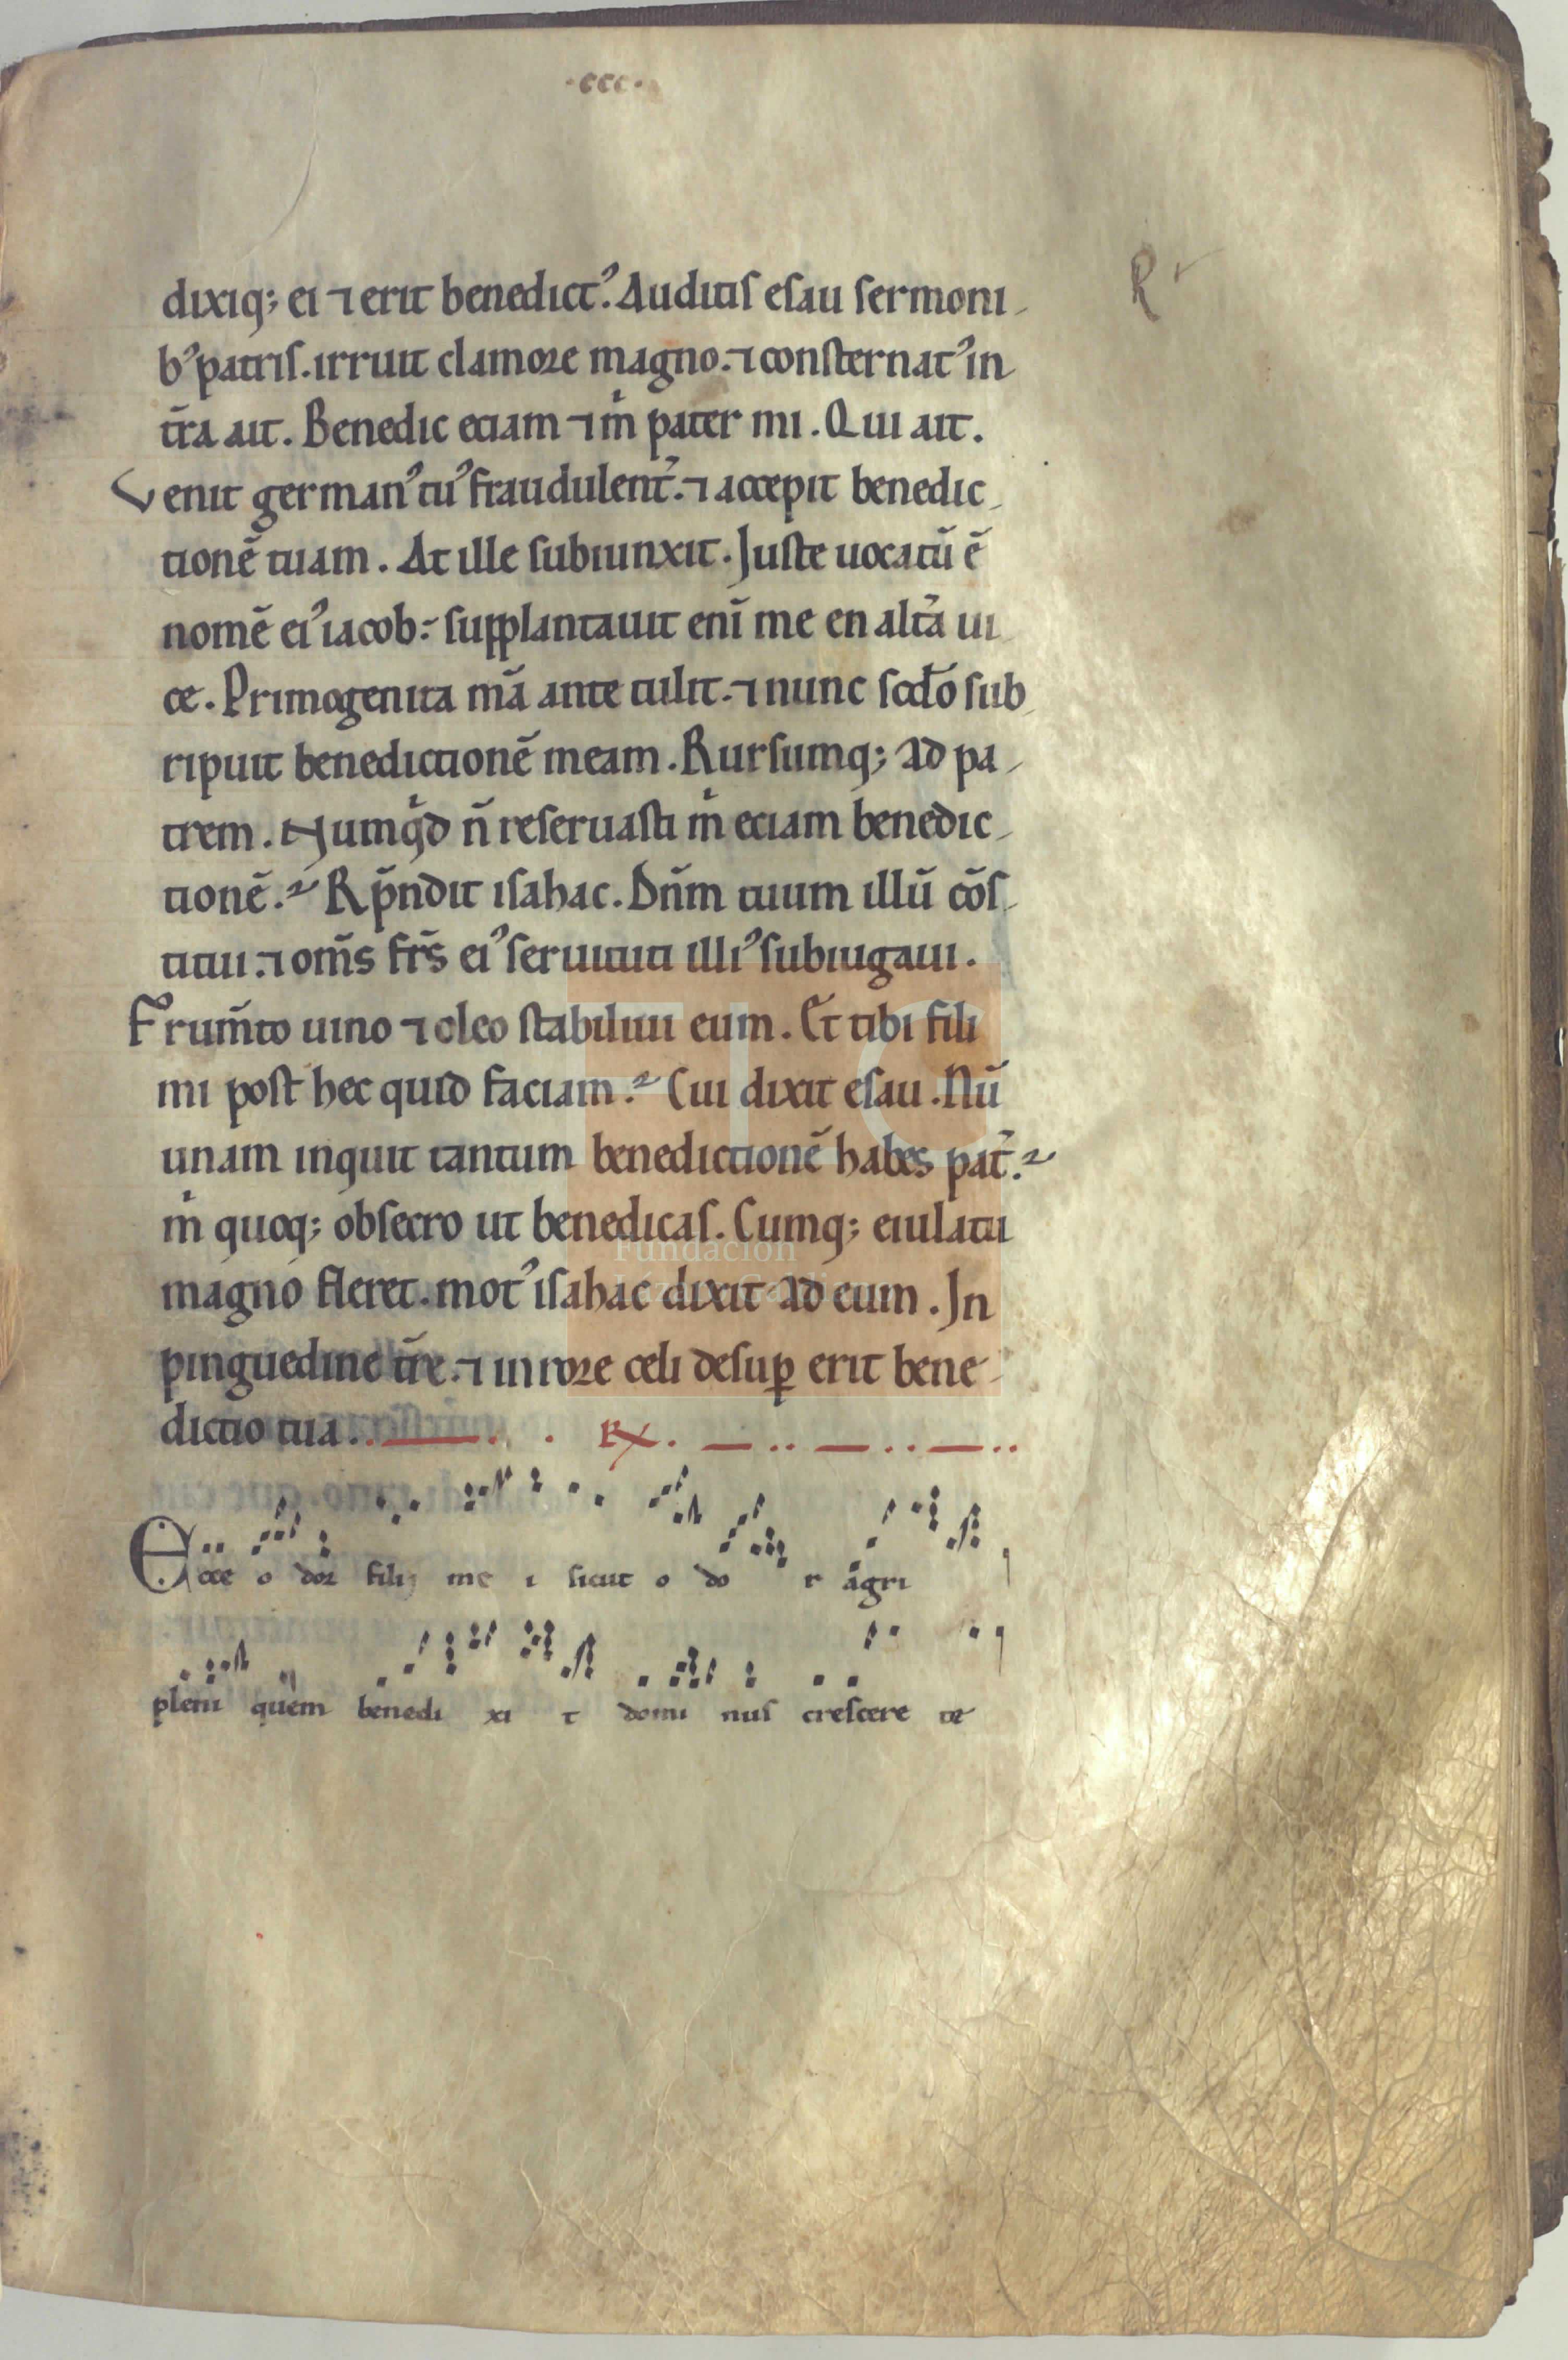 ·ccc·
R
dixiq; ei ⁊ erit benedict᾿. Auditis esau sermoni
b᾿ patris. irruit clamore magno. ⁊ consternat᾿ in
t̃ra ait. Benedic eciam ⁊ m̍ pater mi. Qui ait.
Venit german᾿ tu᾿ fraudulent̾. ⁊ accepit benedic
tionẽ tuam. At ille subiunxit. Juste uocatũ ẽ
nomẽ ei᾿ iacob. supplantauit enĩ me en alt̾a ui
ce. Primogenita mẽa ante tulit. ⁊ nunc scđo sub
ripuit benedictionẽ meam. Rursumq; ad pa
trem. Numq̍d ñ reseruasti m̍ eciam benedic
tionẽ. Rp̃ndit isahac. Dñm tuum illũ cõs
titui. ⁊ om̃s fr̃s ei᾿ seruituti illi᾿ subiugaui.
Frum̃to uino ⁊ oleo stabiliui eum. Et tibi fili
mi post hec quid faciam. Cui dixit esau. Nũ
unam inquit tantum benedictionẽ habes pat̾.
m̍ quoq; obsecro ut benedicas. Cumq; eiulatu
magno fleret. mot᾿ isahac dixit ad eum. Jn
pinguedine t̃re. ⁊ in rore celi desuꝑ erit bene
dictio tua. R
Ecce o dor filii me i sicut o do r agri
pleni quem benedi xi t domi nus crescere te
FLG
Fundación